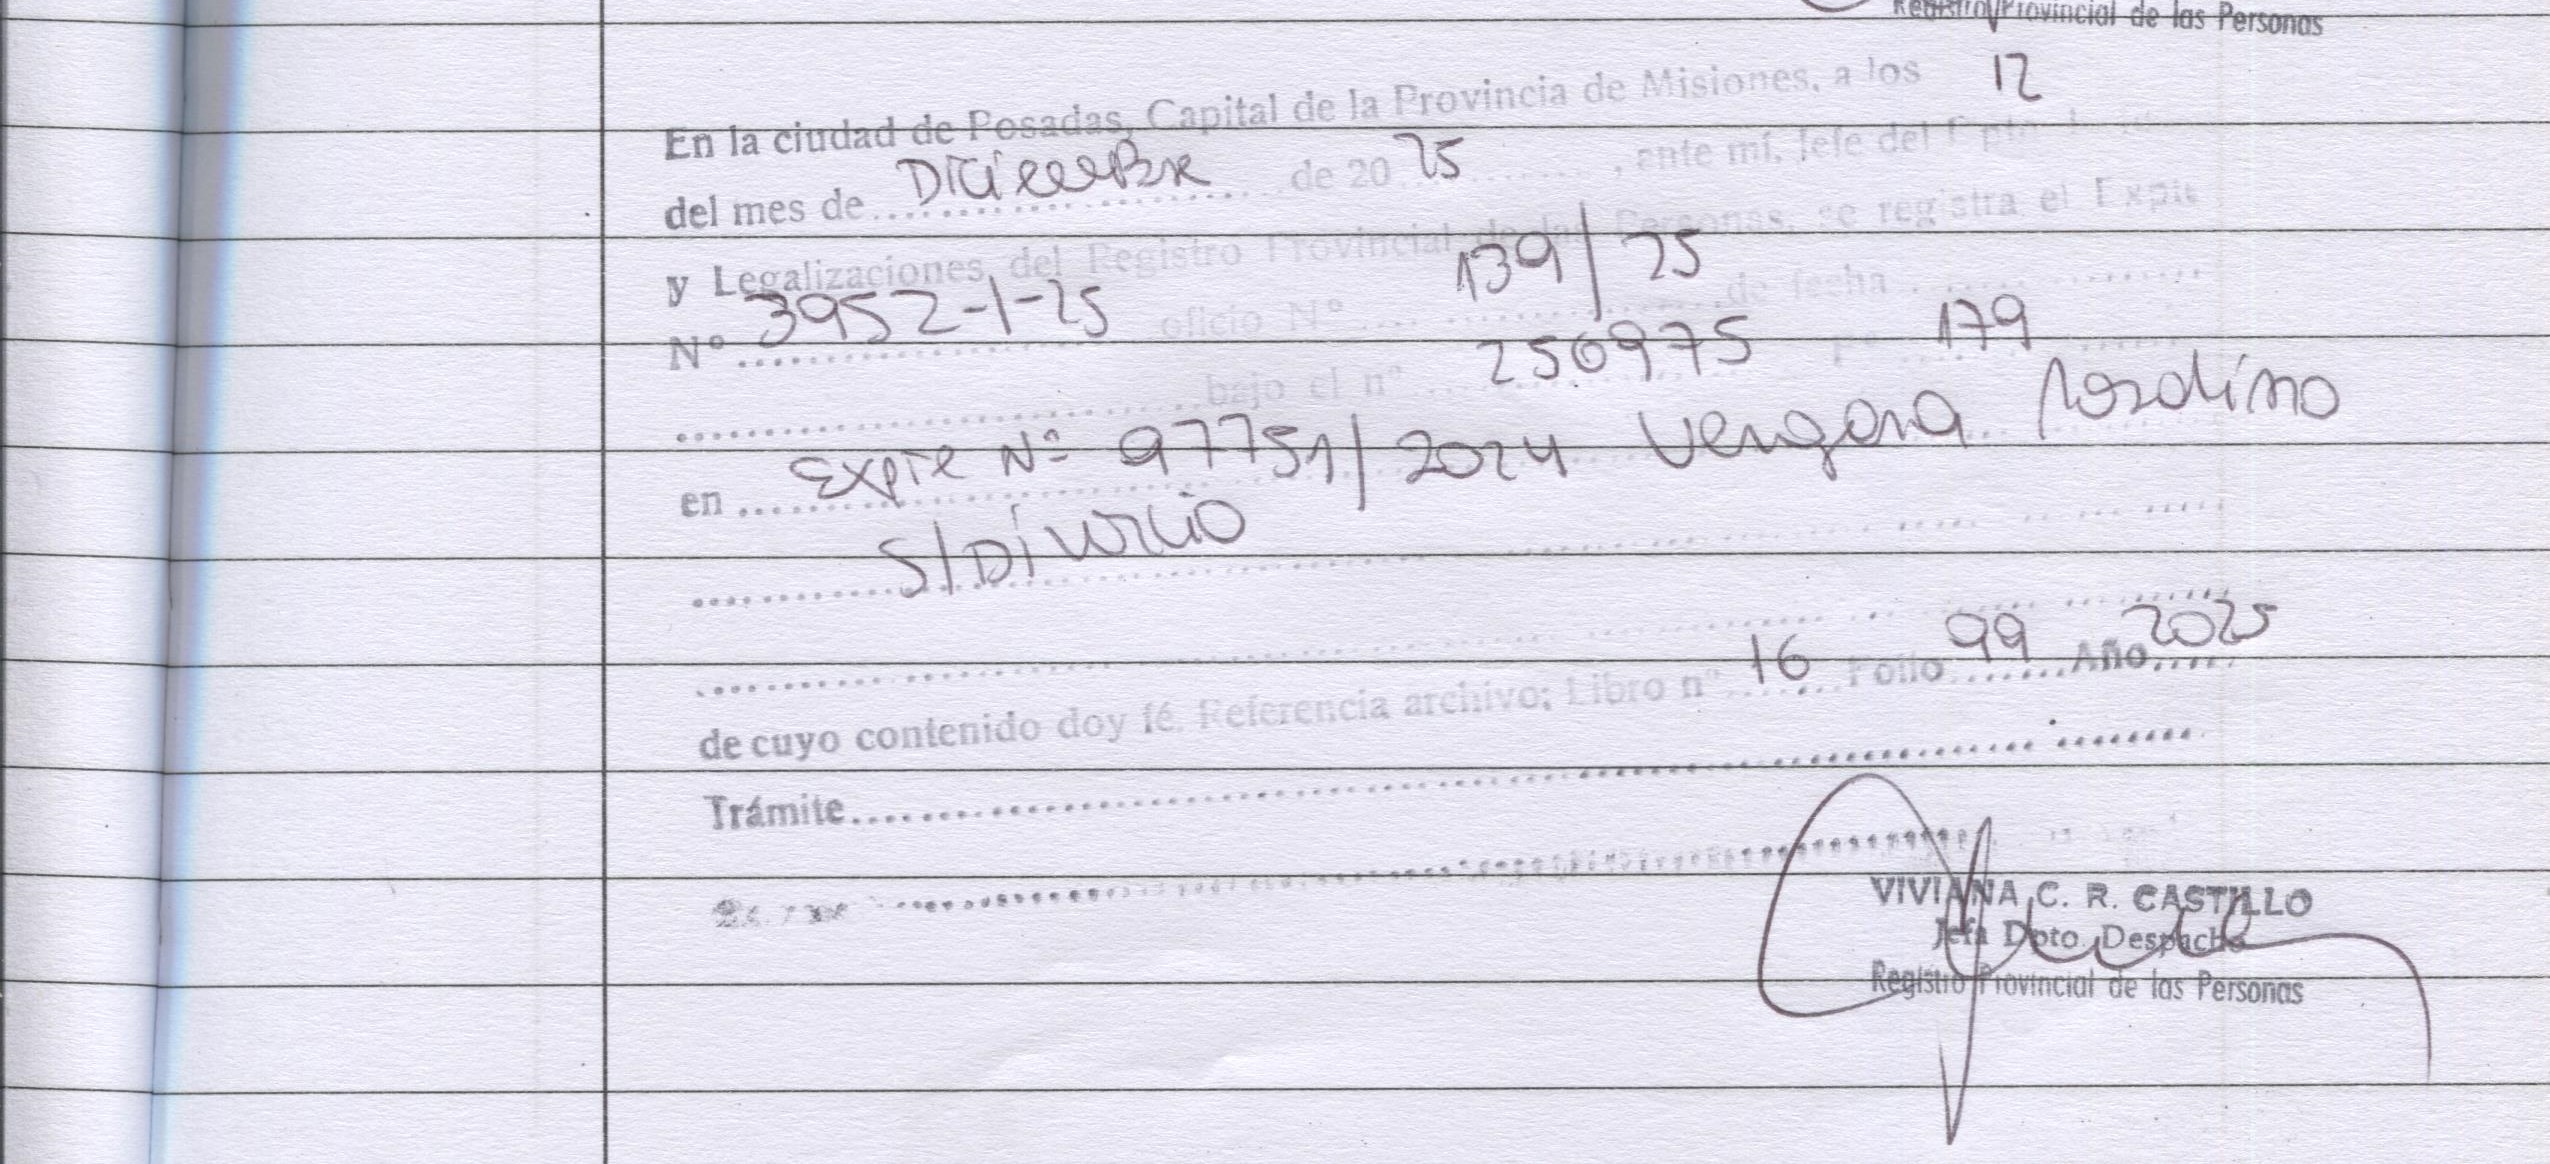 Registro Provincial de las Personas
En la ciudad de Posadas, Capital de la Provincia de Misiones, a los 12
del mes de Diciembre de 20 25, ante mí, Jefe del Dpto.
y Legalizaciones del Registro Provincial de las Personas, se registra el Expte
Nº 3952-1-25 oficio Nº 139/25 de fecha
bajo el nº 250975 Fº 179
en Expte Nº 97751/2024 Vergara
S/Divorcio
de cuyo contenido doy fé. Referencia archivo; Libro nº 16 Folio 99 Año 2025
Trámite
VIVIANA C. R. CASTILLO
Jefa Dpto. Despacho
Registro Provincial de las Personas